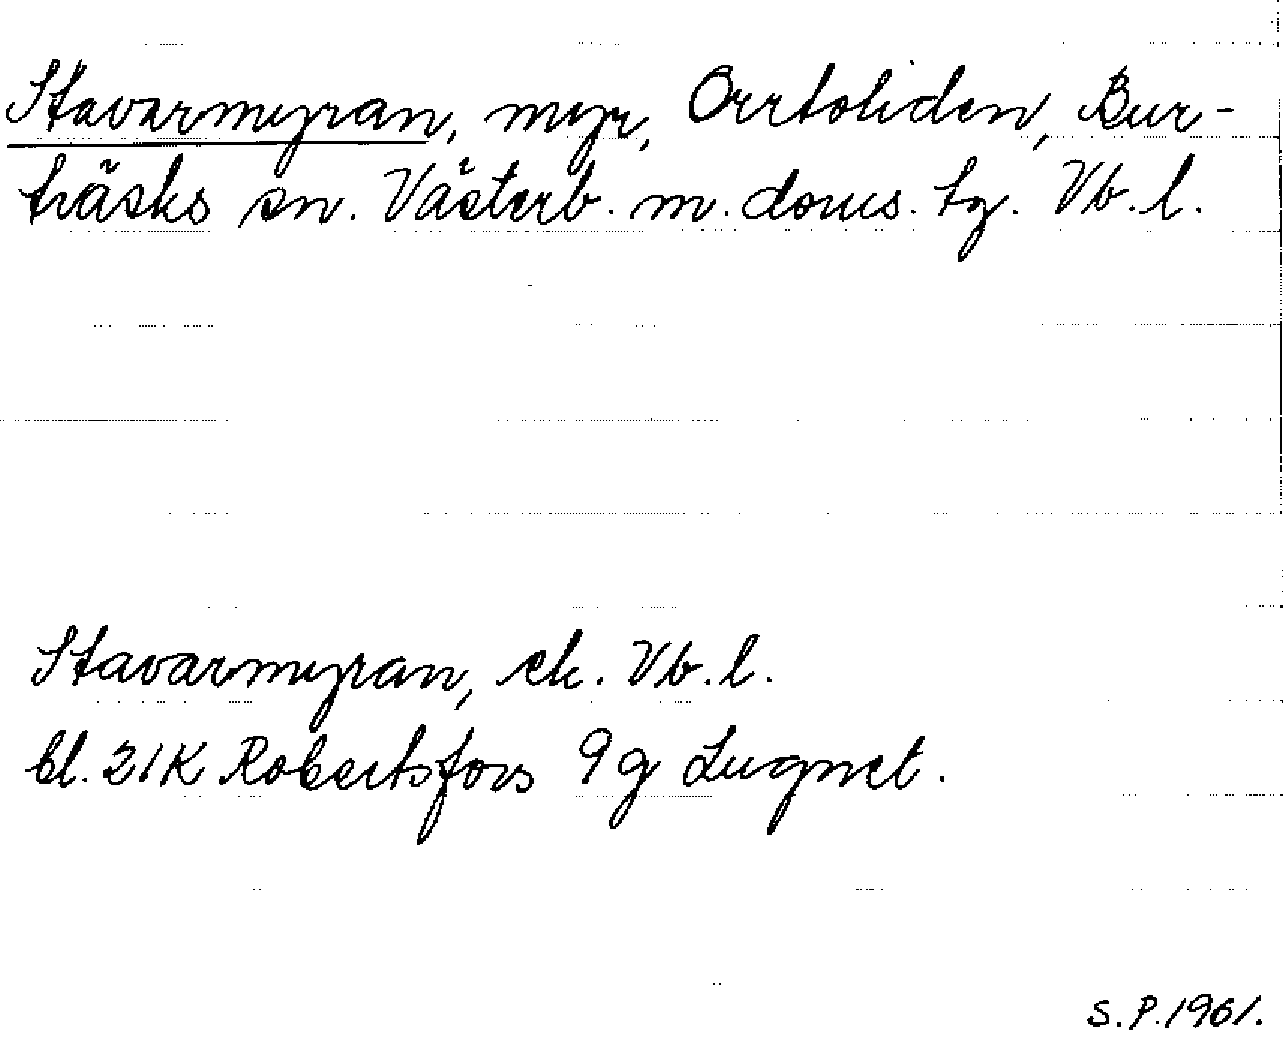 Stavarmyran, myr, Orrtoliden, Bur-
träsks sn. Västerb. m. doms. tg. Vb. l.
Stavarmyran, ek. Vb. l.
bl. 21K Robertsfors 9g Lugnet.
S. P. 1961.